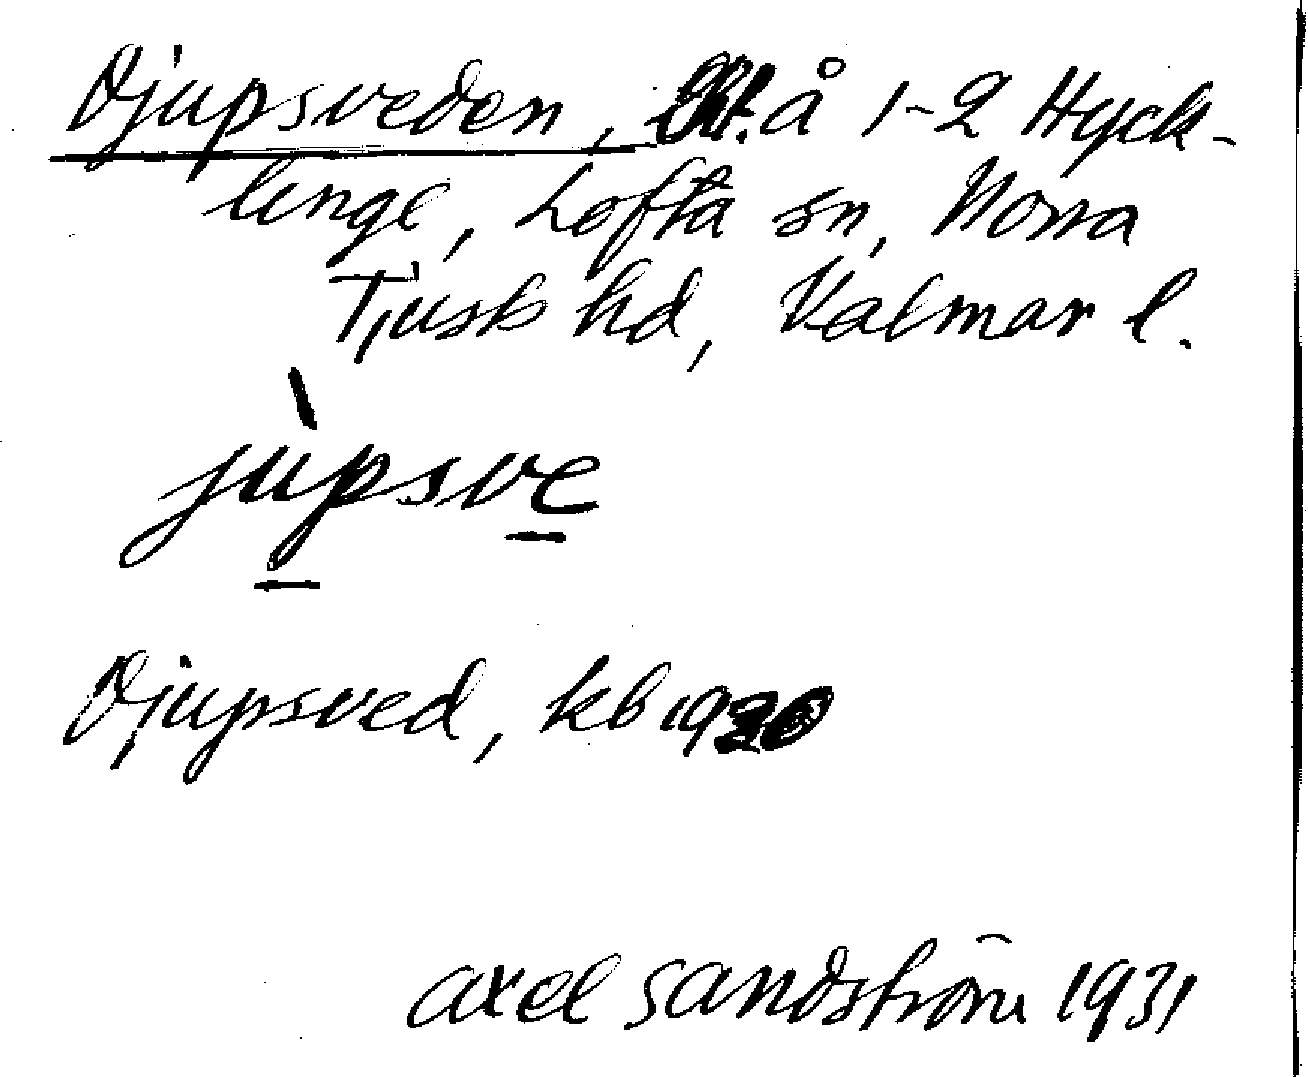 Djupsveden, å 1-2 Hyck-
linge, Lofta sn, Norra
Tjusts hd, Kalmar l.
jùpsve
Djupsved, kb 1930
Axel Sandström 1931